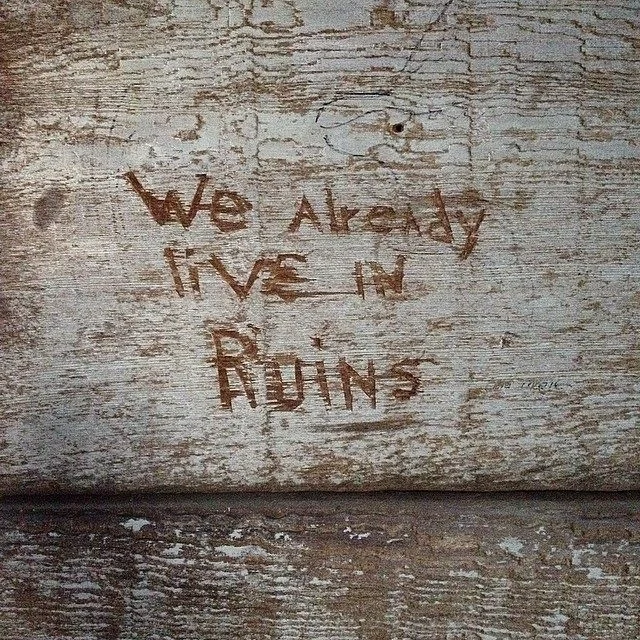 We AlreAdy
liVE iN
RUiNS